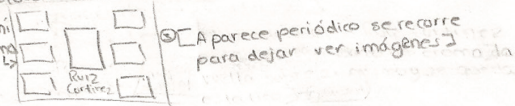 Ruiz
Cortinez
③ [Aparece periódico se recorre
para dejar ver imágenes]